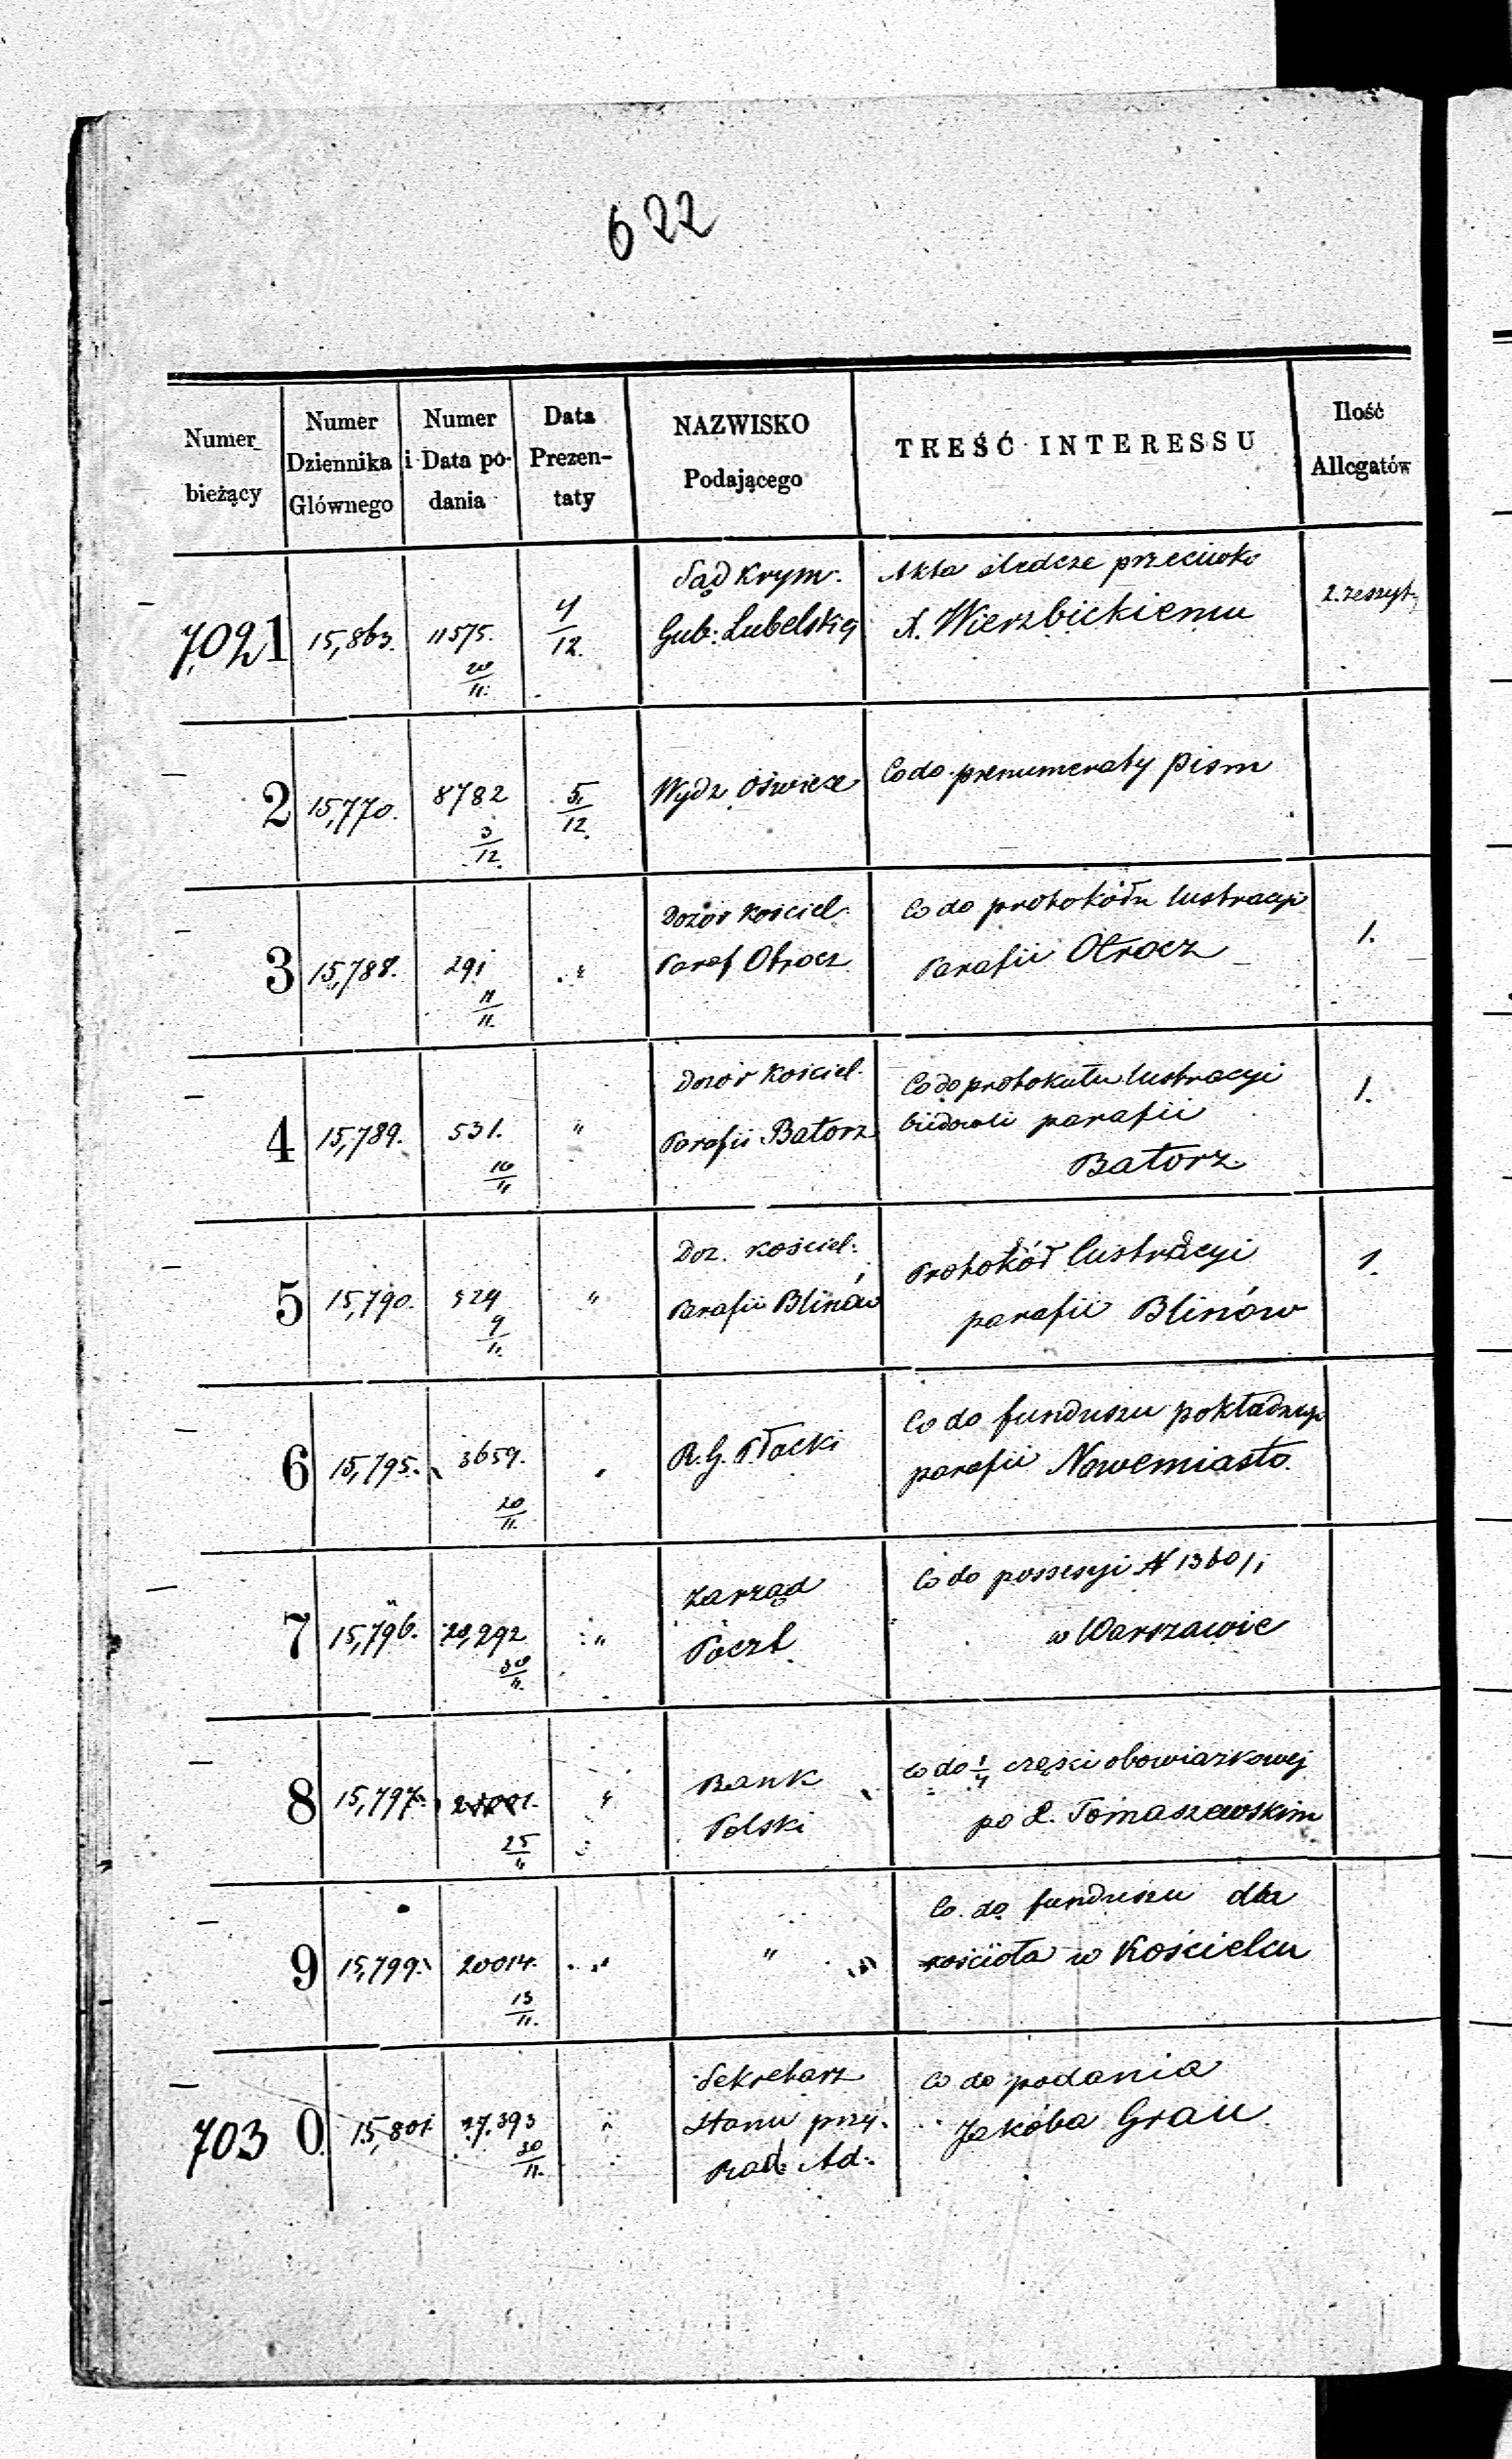 622
Numer bieżący | Numer Dziennika Głównego | Numer i Data podania | Data Prezentaty | NAZWISKO Podającego | TREŚĆ INTERESSU | Ilość Allegatów
7,021 | 15,863. | 11575. 20/11. | 4/12. | Sąd Krym. Gub: Lubelskiej | Akta śledcze przeciwko A. Wierzbickiemu | 2. zeszyty
2 | 15,770. | 8782 3/12. | 5/12. | Wydz Oświece | Co do prenumeraty pism
3 | 15,788. | 291 11/11. | " | Dozór Kościel. Paraf Otrocz | Co do protokółu lustracyi Parafii Otrocz | 1.
4 | 15,789. | 531. 10/11 | " | Dozór Kościel. Parafii Batorz | Co do protokułu lustracyi budowli parafii Batorz | 1.
5 | 15,790. | 529 9/11. | " | Doz. Kościel: Parafii Blinów | Protokół lustracyi parafii Blinów | 1.
6 | 15,795. | 3659. 20/11. | " | R. G. Płocki | Co do funduszu pokładnego parafii Nowemiasto.
7 | 15,796. | 20,292 30/11. | " | Zarząd Poczt. | Co do possesyi N 1360/1 w Warszawie
8 | 15,797. | 25/11 | " | Bank Polski | Co do 1/4 części obowiązkowej po L. Tomaszewskim
9 | 15,799. | 20014. 13/11. | " | " | Co do funduszu dla kościoła w Kościelcu
7030. | 15,801. | 27,393 30/11. | " | Sekretarz Stanu przy Rad. Ad. | Co do podania Jakóba Grau.